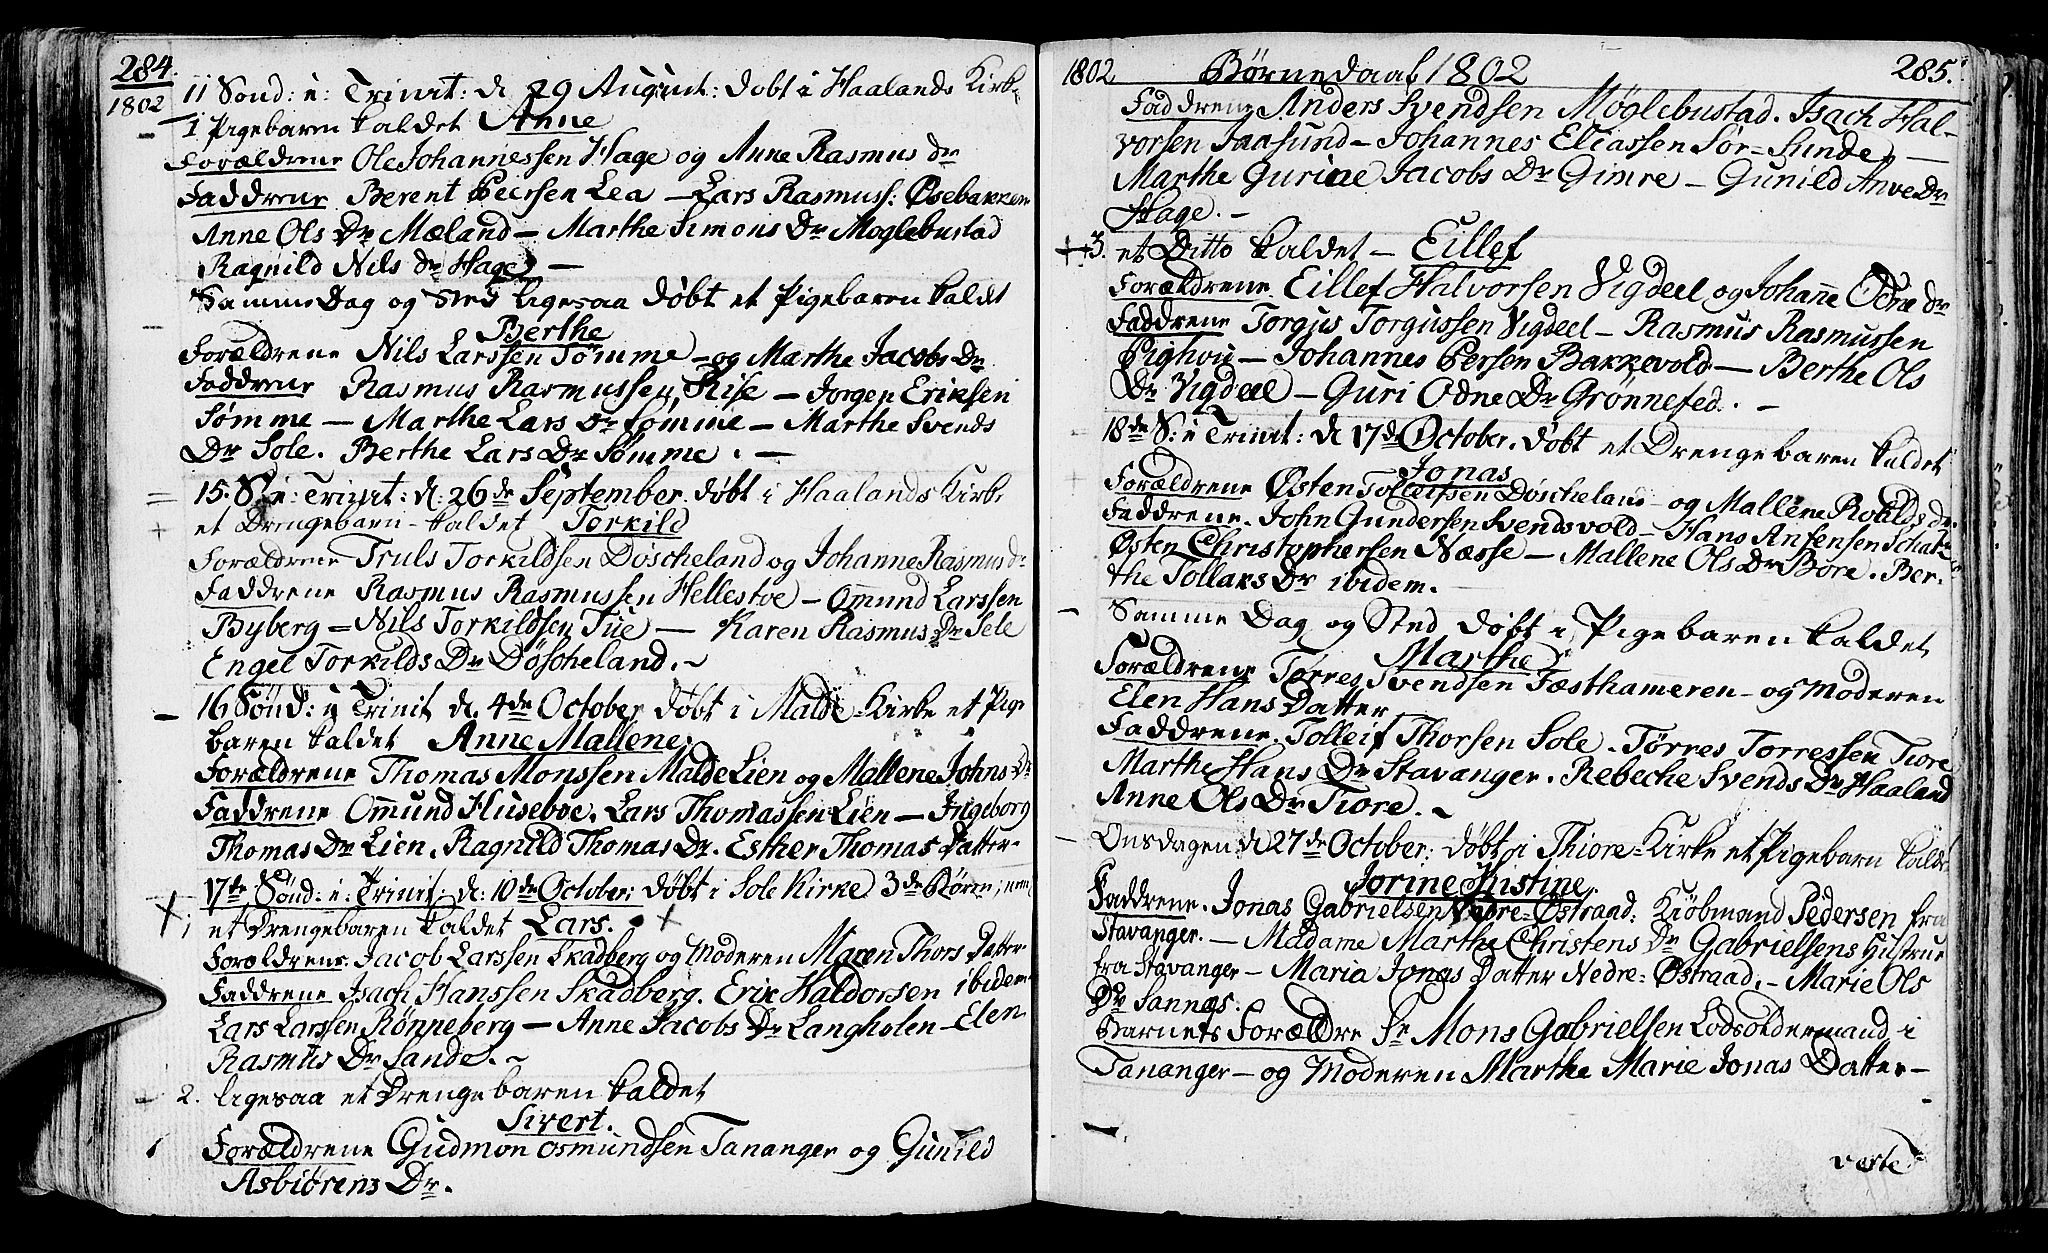 284.
1802
11 Sönd: e: Trinit: d 29 August: döbt i Haalands Kirk
1 Pigebaren kaldet Anne
Forældrene Ole Johannessen Hage og Anne Rasmus dr
Faddrene Berent Peersen Lea – Lars Rasmuss: Øsebakken
Anne Ols Dr Mæland – Marthe Simons Dr Moglebustad
Ragnild Nils dr Hage –
Samme Dag og Sted ligesaa döbt et Pigebaren kaldt
Berthe
Forældrene Nils Larssen Sømme – og Marthe Jacobs Dr
Faddrene Rasmus Rasmussen Rise – Jorgen Eriksen
Sømme – Marthe Lars Dr Sømme – Marthe Svends
Dr Sole. Berthe Lars Dr Sømme. –
15. S: e: Trinit: d: 26de September döbt i Haalands Kirke
et Drengebarn – kaldet Torkild
Forældrene Truls Torkildsen Döscheland og Johanne Rasmus dr
Faddrene Rasmus Rasmussen Hellestoe – Omund Larssen
Byberg – Nils Torkildsen Tue – Karen Rasmus Dr Sele
Engel Torkilds Dr Döscheland. ~
16 Sönd: e Trinit d. 4de October döbt i Malde – Kirke et Pige
baren kaldet Anne Mallene
Forældrene Thomas Monssen Malde Lien og Mallene Johns Dr
Faddrene Omund Huseboe. Lars Thomassen Lien – Ingeborg
Thomas Dr Lien. Ragnild Thomas Dr. Esther Thomas Datter –
17de Sönd: e: Trinit: d: 10de October: döbt i Sole Kirke 3de Børn;
1 et Drengebaren kaldet Lars.
Forældrene Jacob Larssen Skadberg og Moderen Maren Thors Datter
Faddrene Isach Hanssen Skadberg. Erik Haldorsen ibidem
Lars Larssen Rönneberg – Anne Jacobs Dr Langholen – Elen
Rasmus Dr Sande. ~
2. ligesaa et Drengebaren kaldet
Sivert.
Forældrene Gudmon Osmundsen Tananger og Gunild
Asbiörens Dr.
1802 Börnedaab 1802 285.
Faddrene Anders Svendsen Möglebustad. Isach Hal-
vorsen Jaasund – Johannes Eliassen Sör-Sunde –
Marthe Gurine Jacobs Dr Gimre – Gunild Anve Dr
Hage. –
3. et Ditto kaldet – Eillef
Forældrene Eillef Halvorsen Vigdeel og Johanne Odne dr
Faddrene Torgus Torgussen Vigdeel – Rasmus Rasmussen
Pighvii – Johannes Persen Bakkevold – Berthe Ols
Dr Vigdeel – Guri Odne Dr Grönnefed. –
18de S: e Trinit: d 17de October. döbt et Drengebaren kaldet
Jonas
Forældrene Østen Tolleifsen Döscheland – og Mallene Roalds dr.
Faddrene. John Gundersen Svendsvold – Hans Anfensen
Østen Christophersen Næsse – Mallene Ols Dr Böre. Ber-
the Tollaks Dr ibidem.
Samme Dag og Sted döbt i Pigebaren kaldet
Marthe
Forældrene Törres Svendsen Fæsthameren – og Moderen
Elen Hans Datter
Faddrene. Tolleif Thorsen Sole. Törres Torressen Tiore
Marthe Hans Dr Stavanger. Rebecke Svends Dr Haaland
Anne Ols Dr Tiore. ~
Onsdagen d 27de October: döbt i Thiore-Kirke et Pigebarn kaldt
Jorine Justine.
Faddrene. Jonas Gabrielsen Nedre-Østraad: Kiöbmand Pedersen fra
Stavanger. – Madame Marthe Christens Dr Gabrielsens Hustrue
fra Stavanger – Maria Jonas Datter Nedre-Østraad. – Marie Ols
Dr Sannes.
Barnets Forældre Sr Mons Gabrielsen Lodsoldermand i
Tananger – og Moderen Marthe Marie Jonas Datter –
verte